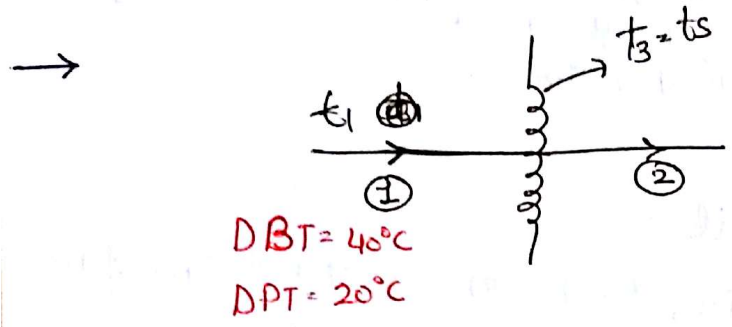 →
t₃ = ts
t₁
① ②
DBT = 40°C
DPT = 20°C